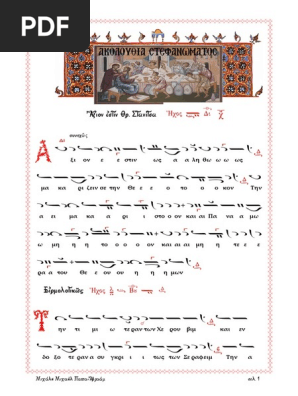 PDF
ΑΚΟΛΟΥΘΙΑ ΣΤΕΦΑΝΩΜΑΤΟΣ
Ἄξιον ἐστίν Θρ. Στανίτσα Ἦχος Δι
συνεχῶς
Α ξι ον ε ε στιν ως α α λη θω ω ω ως
μα κα ρι ζειν σε την Θε ε ε ο το ο ο κον Την
α ει μα κα α ρι ι στο ο ον και αι Πα να α μω
ω μη η η το ο ο ον και αι αι μη η τε ε ε
ρα α του Θε ε ου ον η η η μων
Εἱρμολογικῶς Ἦχος
Τ ην τι μι ω τε ραν των Χε ρου βιμ και εν
δο ξο τε ραν α συ γκρι ι ι τως των Σε ραφειμ Την α
σελ. 1